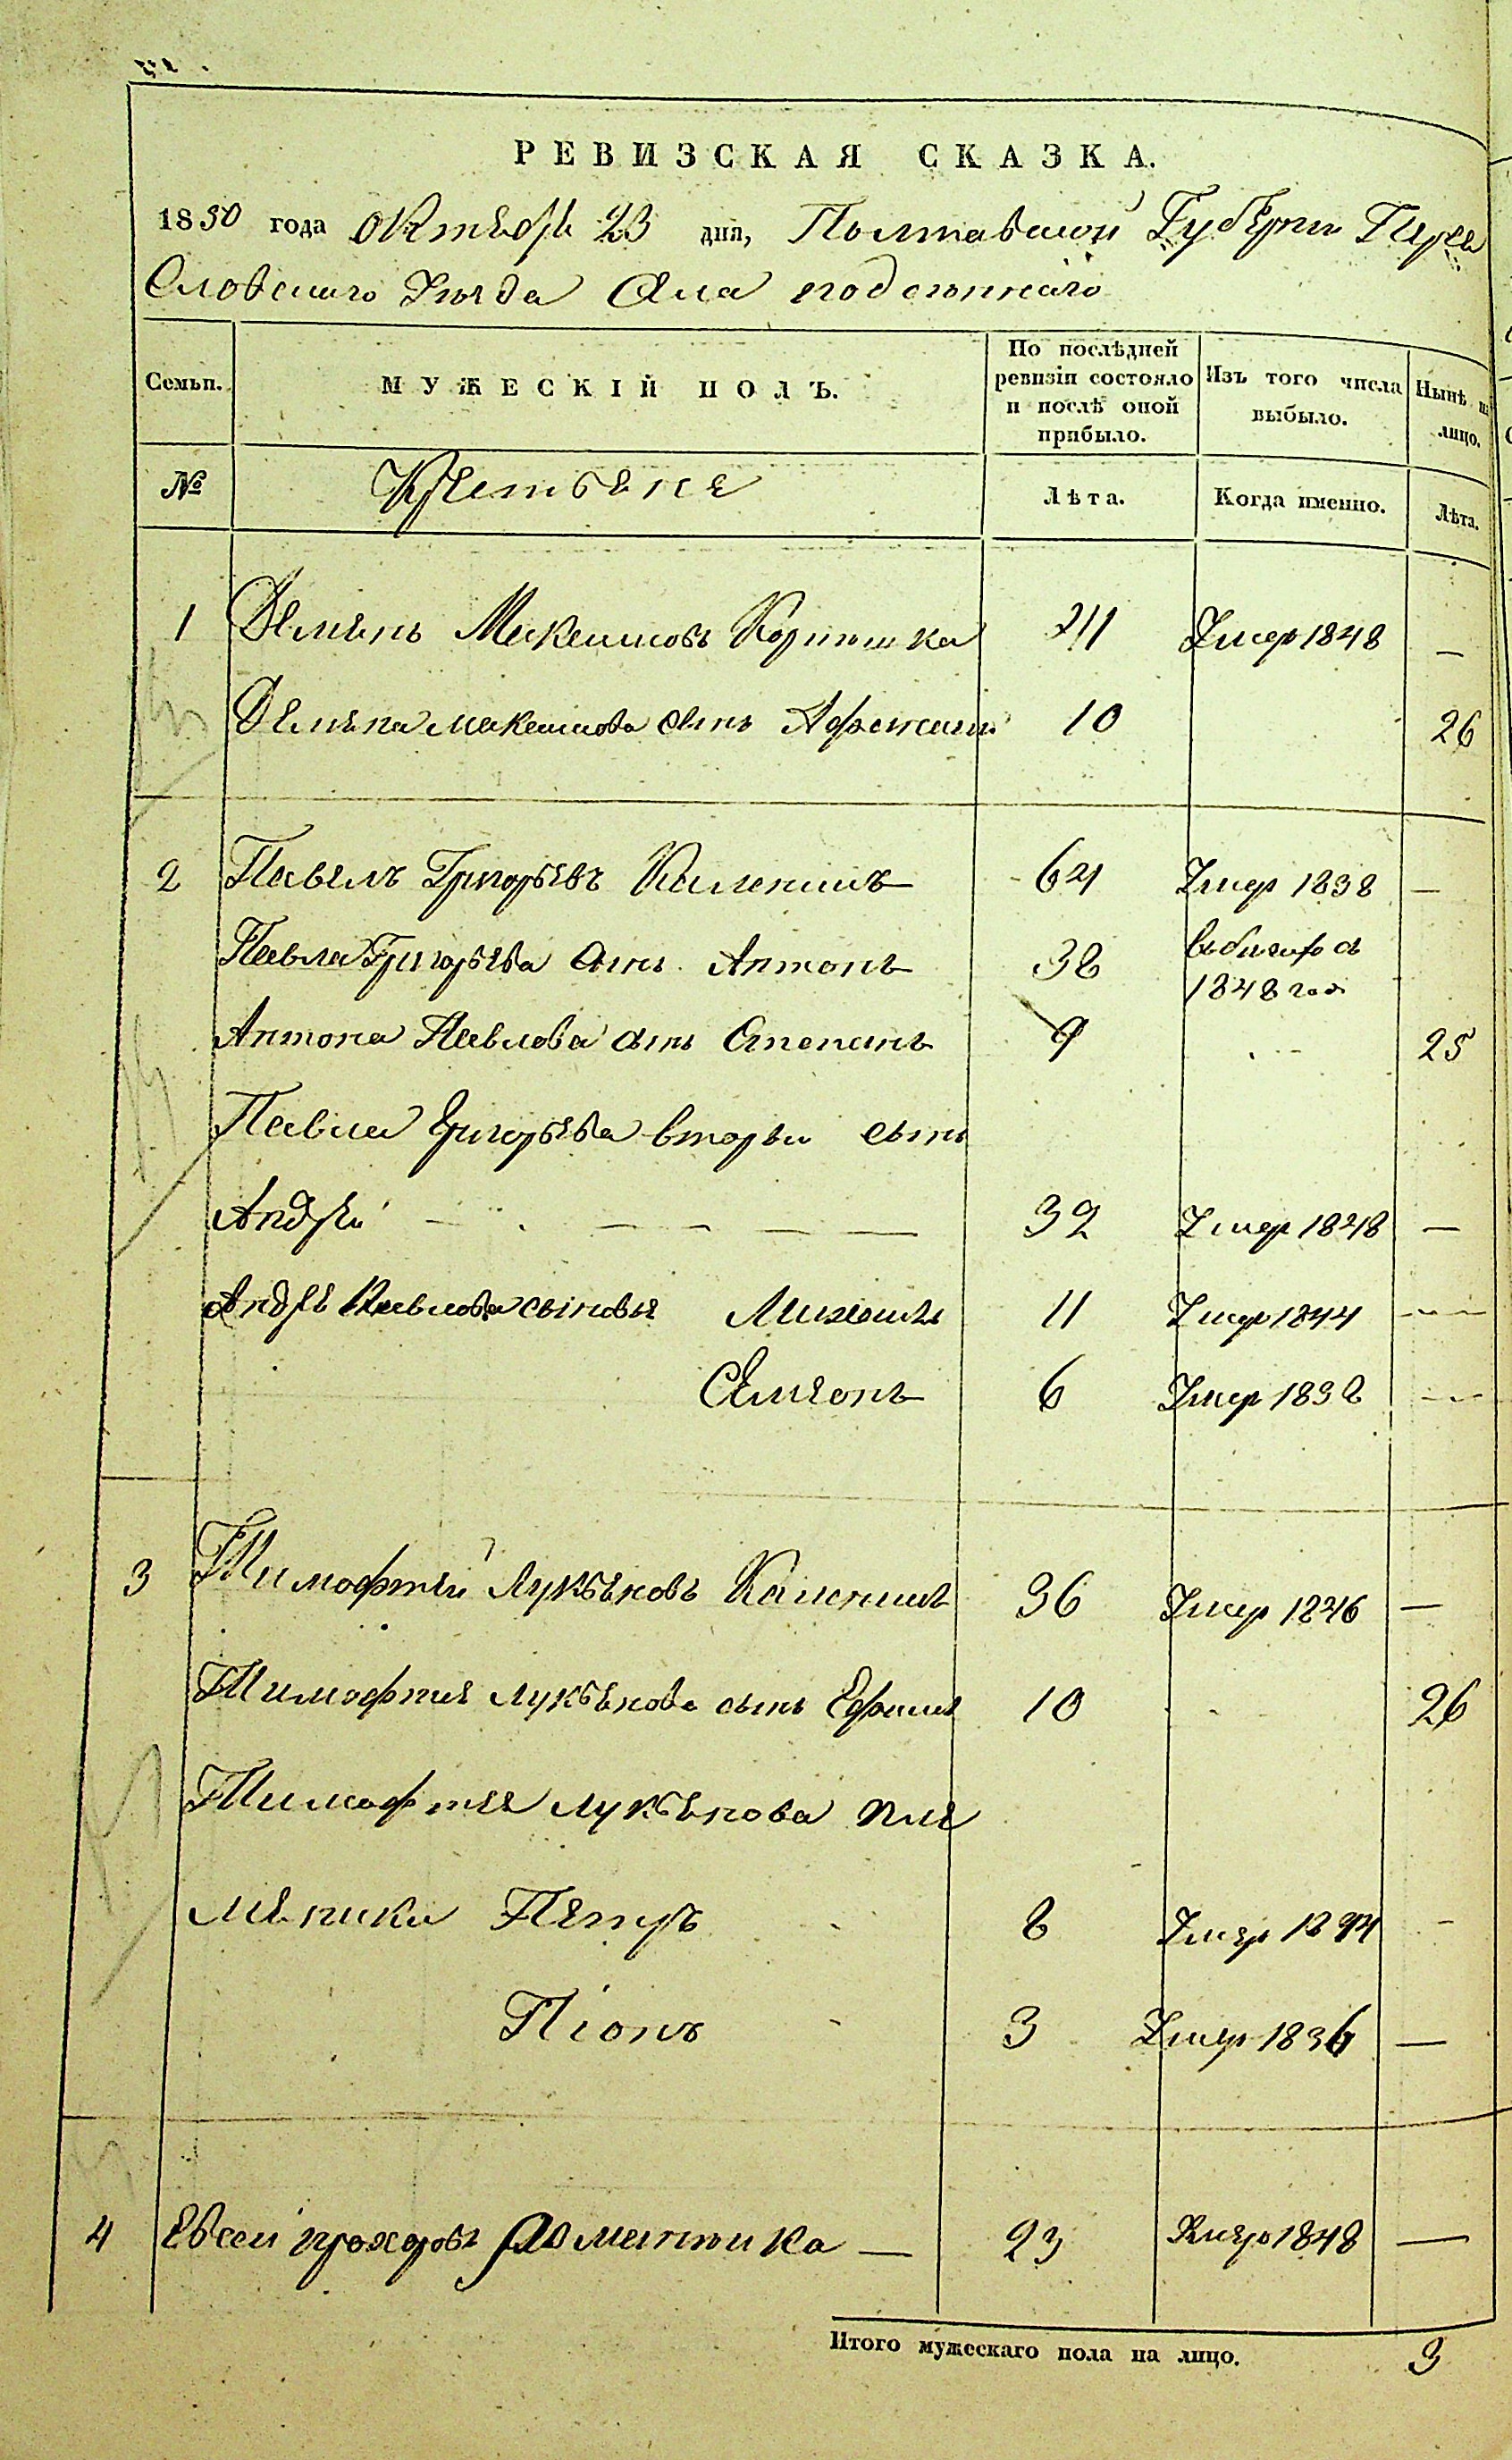 РЕВИЗСКАЯ СКАЗКА.
1850 года Октября 23 дня, Полтавской Губерни Пере
Словскаго Уезда Села
Семьи.
МУЖЕСКІЙ ПОЛЪ.
По послѣдней ревизіи состояло и послѣ оной прибыло.
Изъ того числа выбыло.
Нынѣ на лицо.
№
Крестьяне
Лѣта.
Когда именно.
Лѣта.
1 Демьянъ Максимовъ 41 Умер 1848 —
Демьяна Максимова сынъ 10 26
2 Павелъ Григорьевъ 64 Умер 1838 —
Павла Григорьева сынъ Антонъ 38
1848 год
Антона Павлова сынъ Степанъ 9 25
Павла Григорьева вторы сынъ
Андрей — — — — 32 Умер 1848 —
Андрея Павлова сыновья Михаилъ 11 Умер 1844 —
Семеонъ 6 Умер 1838 —
3 Тимофтей Лукьяновъ 36 Умер 1846 —
Тимофтея Лукьянова сынъ Ефимъ 10 26
Тимофтея Лукьянова пле
мяники Петръ 8 Умер 1844 -
Піонъ 3 Умер 1836 —
4 Евсей Прохоровъ — 23 Умер 1848 —
Итого мужескаго пола на лицо. 3